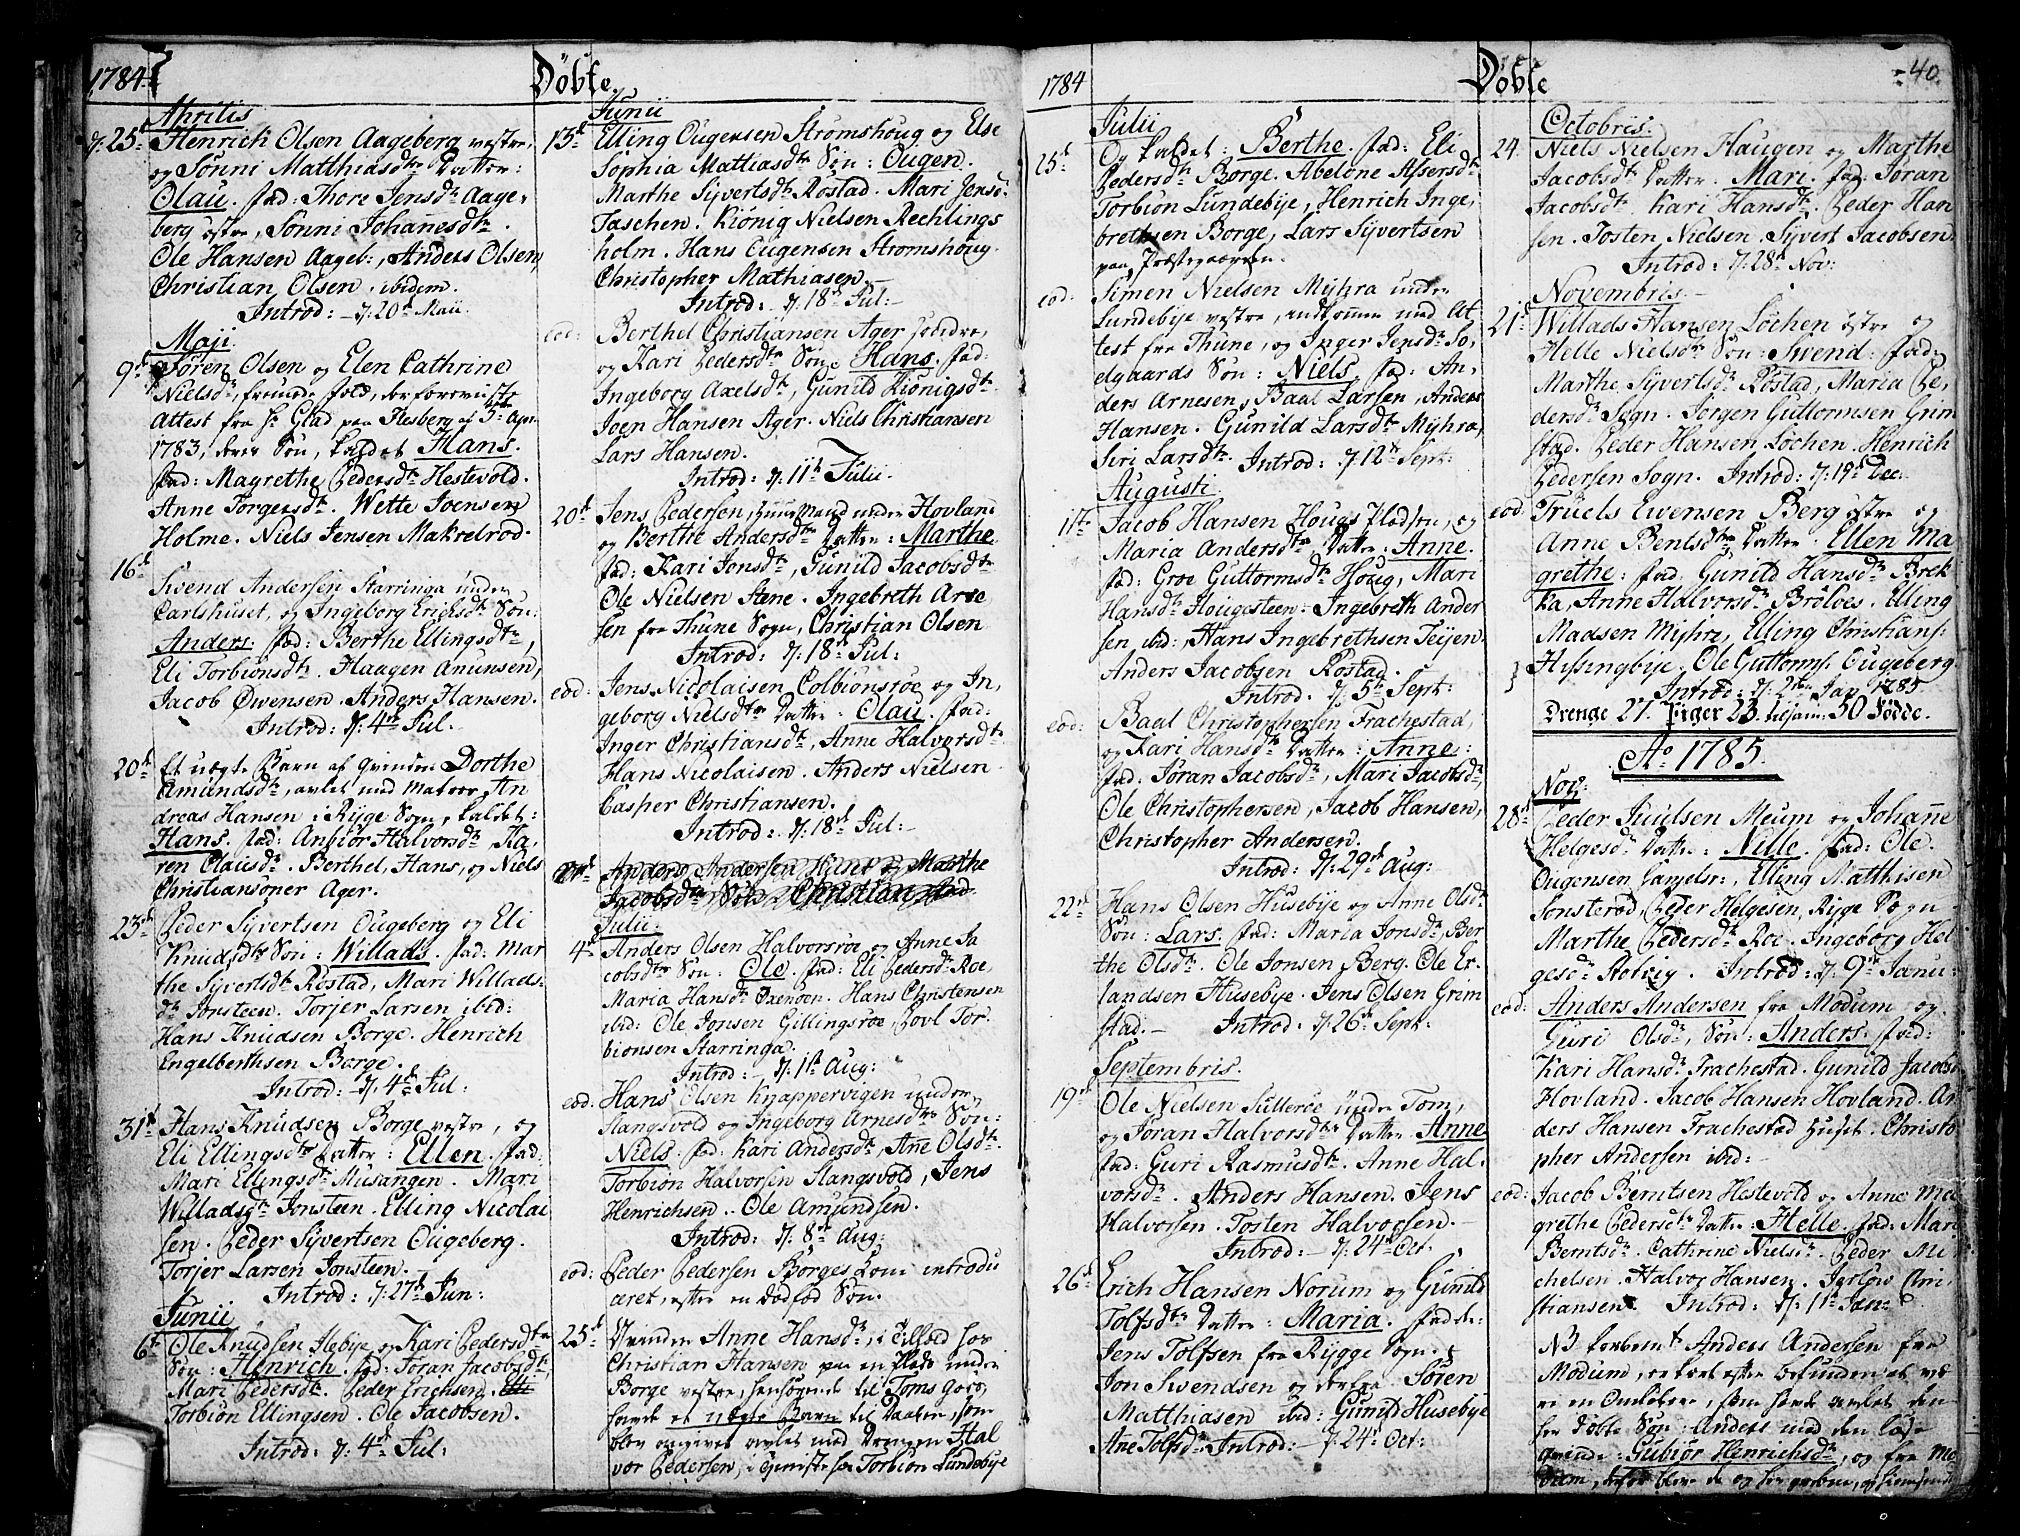 1784
Döbte.
Aprilis
d: 25de Henrich Olsen Aageberg vestre,
og Sönni Matthiasdtr Datter:
Olau. fad: Thore Jensdtr Aage,
berg östre, Sönni Johanesdtr.
Ole Hansen Aageb:, Anders Olsen,
Christian Olsen, ibidem.
Introd: d: 20de Maii.
Maji.
9de Sören Olsen og Elen Cathrine
Nielsdr, fremede folk, der foreviiste
Attest fra Hr Glad paa Flesberg af 5te Apr.
1783, deres Sön, kaldet Hans.
fad: Magrethe Pedersdtr Hestevold.
Anne Torgersdtr. Wette Joensen
Holme. Niels Jensen Makrelrod.
16de
Svend Andersen Starringa under
Carlshuset, og Ingeborg Erichsdtr Sön:
Anders. fad: Berthe Ellingsdtr,
Eli Torbionsdtr. Haagen Amunsen,
Jacob Öwensen. Anders Hansen.
Introd: d: 4de Jul.
20de Et uægte Barn af Qvinden Dorthe
Amandsdtr, avlet med Matros An
dreas Hansen i Ryge Sogn, kaldet:
Hans. fad: Anbiör Halvorsdtr Ka,
ren Olausdr. Berthel, Hans, og Niels
Christiansöner Ager.
23de Peder Syvertsen Ougeberg og Eli
Knudsdtr Sön: Willads. fad: Mar
the Syvertsdtr Röstad, Mari Willads-
dtr Jonsteen. Torjer Larsen ibid:
Hans Knudsen Borge. Henrich
Engelberthsen Borge.
Introd: d: 4de Jul:
31te Hans Knudsen Borge vestre, og
Eli Ellingsdtr Datter: Ellen. fad:
Mari Ellingsdtr Musangen. Mari
Willadsdtr Jonsteen. Elling Nicolai
sen. Peder Syvertsen Ougeberg.
Torjer Larsen Jonsteen.
Introd: d: 27de Jun:
Junii
6te Ole Knudsen Ilebye og Kari Pedersdtr
Sön: Henrich. fad: Jöran Jacobsdtr,
Mari Pedersdtr. Peder Erichsen.
Torbion Ellingsen. Ole Jacobsen.
Introd: d: 4de Jul
Junii
13de Elling Ougensen Strömshoug og Else
Sophia Mattiasdtr Sön: Ougen.
Marthe Syvertsdtr Röstad. Mari Jensd:
Taschen. König Nielsen Rechlings
holm. Hans Ougensen Strömshoug.
Christopher Mathiasen.
Introd: d: 18de Jul:
eod: Berthel Christiansen Ager söndre,
og Kari Pedersdtr Sön: Hans. fad:
Ingeborg Axelsdtr, Gunild Königsdtr.
Joen Hansen Ager. Niels Christiansen
Lars Hansen.
Introd: d: 11te Julii.
20de Jens Pedersen, Huusmand under Hovland
og Berthe Andersdtr Datter: Marthe
fad: Kari Jonsdtr, Gunild Jacobsdtr
Ole Nielsen Stene. Ingebreth Arve
sen fra Thune Sogn, Christian Olsen
Introd: d: 18de Jul:
eod: Jens Nicolaisen Colbionsröe og In,
geborg Nielsdtr Datter. Olau. fad:
Inger Christiansdtr, Anne Halvorsdtr.
Hans Nicolaisen. Anders Nielsen
Casper Christiansen.
Introd: d: 18de Jul:
Anders Andersen og Marthe
Jacobsdtr Sön Christian fad
Julii.
4de Anders Olsen Halvorsröe og Anne Ja
cobsdtr Sön: Ole. fad: Eli Pedersdtr Roe,
Maria Hansdtr Oxenöen. Hans Christensen
ibid: Ole Jonsen Gillingsröe, Povl Tor.
bionsen Starringa.
Introd: d: 1te Aug:
eod: Hans Olsen Knappervigen under
Hangsvold og Ingeborg Arnesdtr Sön:
Niels. fad: Kari Andersdtr, Ane Olsdtr.
Torbion Halvorsen Slangsvold, Jens
Henrichsen. Ole Amundsen.
Introd: d: 8de Aug:
eod: Peder Pedersen Borges Kone introdu
ceret, efter en Dödfód Sön.
25de Qvinden Anne Hansdr, i Tilhold hos
Christian Hansen paa en Plads under
Borge vestre, henhörende til Toms Gods,
havde et uægte Barn til Daaben, som
blev angivet avlet med Drengen Hal
vor Pedersen, i Tjeneste hos Torbion Lundebye
1784
Döbte
40.
Julii
25de Og kaldet: Berthe. fad: Eli
Pedersdtr Borge. Abelone Assersdtr
Torbion Lundebye, Henrich Inge,
brethsen Borge, Lars Syvertsen
paa Præstegaarden.
eod: Simen Nielsen Myhra under
Lundebye vestre, andkommen med At
test fra Thune, og Inger Jensdtr So,
elgaards Sön: Niels. fad: An,
ders Arnesen, Baal Larsen, Anders
Hansen. Gunild Larsdtr Myhra,
Siri Larsdtr. Introd: d: 12te Sept:
Augusti.
1te Jacob Hansen Hougs Pladsen, og
Maria Andersdtr Datter: Anne.
fad: Groe Guttormsdtr Houg, Mari
Hansdtr Hougesteen. Ingebreth Ander
sen ibid:, Hans Ingebrethsen Teijen
Anders Jacobsen Röstad.
Introd: d: 5te Sept:
eod: Baal Christophersen Frachestad,
og Kari Hansdtr Datter: Anne:
fad: Jöran Jacobsdtr, Mari Jacobsdtr,
Ole Christophersen, Jacob Hansen,
Christopher Andersen.
Introd: d: 29de Aug:
22de Hans Olsen Husebye og Anne Olsdtr
Sön: Lars. fad: Maria Jonsdtr, Ber
the Olsdtr. Ole Jonsen Berg. Ole Er.
landsen Husebye. Jens Olsen Grim
stad. Introd: d: 26de Sept:
Septembris.
19de Ole Nielsen Sulleröe under Tom,
og Jöran Halvorsdtr Datter. Anne
fad: Guri Rasmusdtr. Anne Hal.
vorsdtr. Anders Hansen. Jens
Halvorsen. Tosten Halvorsen.
Introd: d: 24de Oct:
26de Erich Hansen Norum og Gunild
Tolfsdtr Datter: Maria. fadde:
Jens Tolfsen fra Rygge Sogn.
Jon Swendsen og dessen. Sören
Matthiasen ibid: Gunild Husebye
Ane Tolfsdr. Introd: d: 24de Oct:
Octobriis.
24. Niels Nielsen Haugen og Marthe
Jacobsdtr Datter. Mari. fad: Jöran
Jacobsdtr. Kari Hansdtr. Peder Han
sen. Tosten Nielsen. Syvert Jacobsen.
Introd: d: 28de Nov:
Novembris.
21de Willads Hansen Löchen östre og
Helle Nielsdtr Sön: Swend. fad:
Marthe Syvertsdtr Röstad, Maria Pe,
dersdtr Sogn. Jörgen Guttormsen Grim
stad. Peder Hansen Löchen. Henrich
Pedersen Sogn. Introd: d: 19de Dec:
eod: Truels Ewensen Berg östre og
Anne Bentsdtr Datter. Ellen Ma
grethe: fad. Gunild Hansdtr Brek
ka, Anne Halvorsdtr Brölöes. Elling
Madsen Myhre, Elling Christians:
Hissingbye. Ole Guttorms: Ougeberg
Introd: d: 2den Jan 1785
Drenge 27. Piger 23. tilsam: 50 Födde.
Ao 1785.
Nov:
28de Peder Juulsen Meum og Johanne
Helgesdtr Datter: Nille. fad: Ole.
Ougensen Gamelsr:, Elling Matthisen
Sonsteröd, Peder Helgesen, Ryge Sogn
Marthe Pedersdtr Roe. Ingeborg Hel
gesdr Rolvig. Introd: d: 9de Janu:
eod: Anders Andersen fra Modum og
Guri Olsdr, Sön: Anders. fad:
Kari Hansdtr Frachestad. Gunild Jacobs:
Hovland. Jacob Hansen Hovland. An
ders Hansen Frachestad Huset. Christo
pher Andersen ibid:
eod: Jacob Berntsen Hestevold og Anne Ma
grethe Pedersdtr Datter: Helle. fad: Mari
Berntsdr. Cathrine Nielsdtr. Peder Mi
chelsen. Halvor Hansen. Iver Chri
stiansen. Introd: d: 11te Jan:
NB forbemte Anders Andersen fra
Modum, er kort efter befunden at væ
re en Omlöber, som havde avlet den
her döbte Sön: Anders med den löse
Qvinde: Gubiör Henrichsdtr, og fra Mo